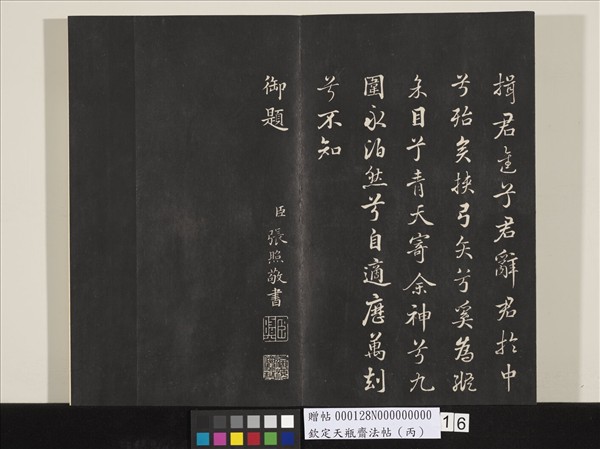 揖君進兮君辭君於中
兮殆矣挾弓矢兮奚為凝
余目兮青天寄余神兮九
圍永泊然兮自適歷萬刧
兮不知
御題
臣張照敬書
贈帖 000128N000000000
欽定天瓶齋法帖（丙）
16